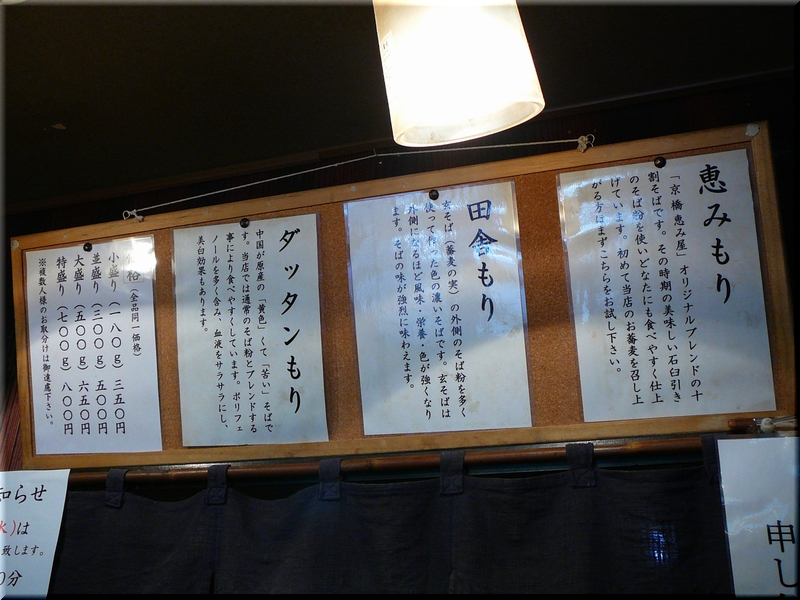 恵みもり
「京橋恵み屋」オリジナルブレンドの十
割そばです。その時期の美味しい石臼引き
のそば粉を使いどなたにも食べやすく仕上
げています。初めて当店のお蕎麦を召し上
がる方はまずこちらをお試し下さい。
田舎もり
玄そば（蕎麦の実）の外側のそば粉を多く
使って打った色の濃いそばです。玄そばは
外側になるほど風味・栄養・色が強くなり
ます。そばの味が強烈に味わえます。
ダッタンもり
中国が原産の「黄色」くて「苦い」そばで
す。当店では通常のそば粉とブレンドする
事により食べやすくしています。ポリフェ
ノールを多く含み、血液をサラサラにし、
美白効果もあります。
格（全品同一価格）
小盛り（一八〇ｇ）三五〇円
並盛り（三〇〇ｇ）五〇〇円
大盛り（五〇〇ｇ）六五〇円
特盛り（七〇〇ｇ）八〇〇円
※複数人様のお取分けは御遠慮下さい。
知らせ
水)は
致します。
0分
申し